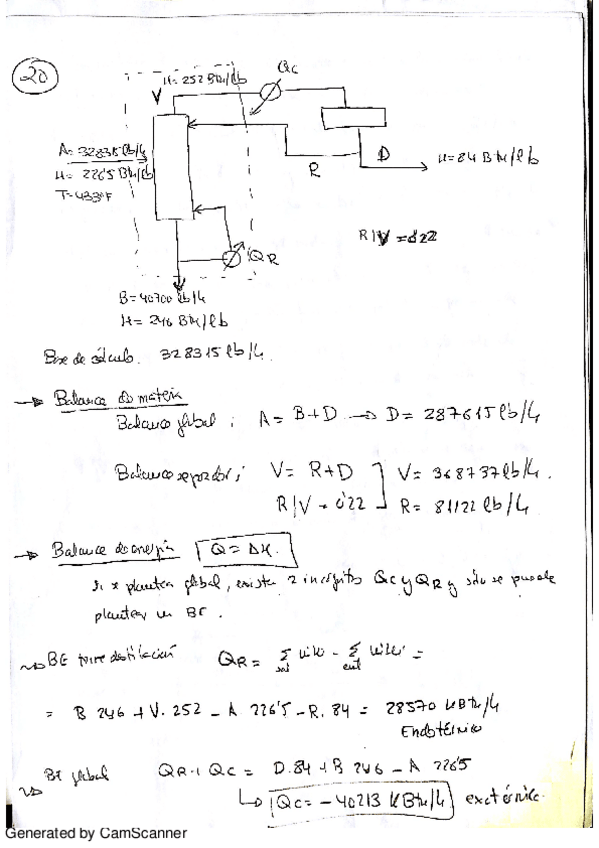 20
H=252 Btu/lb
QC
V
A=328315 lb/h
H= 226'5 Btu/lb
T=433ºF
D
H=84 Btu/lb
R
R/V =0'22
QR
B=40700 lb/h
H= 246 Btu/lb
Base de cálculo. 328315 lb/h.
→ Balance de materia
Balance global: A= B+D → D= 287615 lb/h
Balance separador: V= R+D V= 368737 lb/h.
R/V = 0'22 R= 81122 lb/h.
→ Balance de energía Q= ΔH.
Si se plantea global, existen 2 incógnitas QC y QR y sólo se puede
plantear un BE.
BE torre destilación QR = Σ - Σ =
= B 246 + V. 252 - A 226'5 - R. 84 = 28570 kBtu/h
Endotérmico
BE global QR+QC = D.84 + B 246 - A 226'5
QC= -40213 kBtu/h exotérmico.
Generated by CamScanner